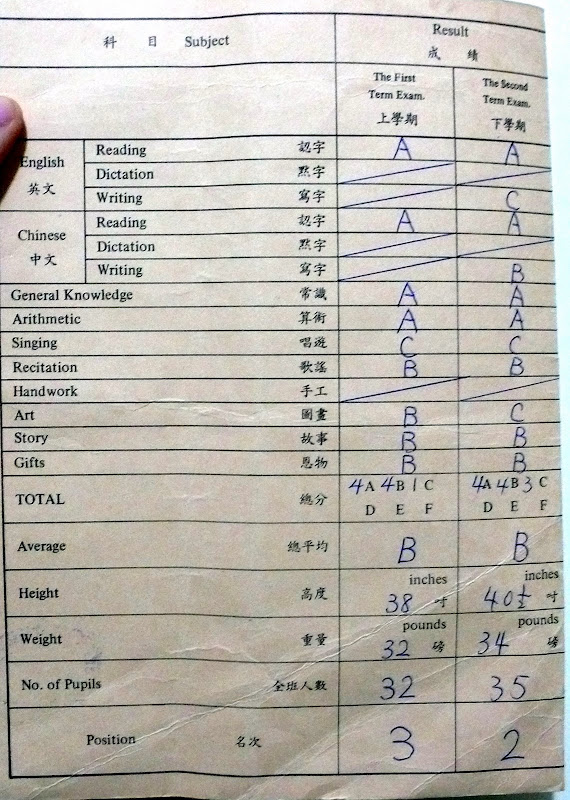 科 目 Subject
Result
成 績
The First
Term Exam.
上學期
The Second
Term Exam.
下學期
English
英文
Reading 認字 A A
Dictation 默字
Writing 寫字 C
Chinese
中文
Reading 認字 A A
Dictation 默字
Writing 寫字 B
General Knowledge 常識 A A
Arithmetic 算術 A A
Singing 唱遊 C C
Recitation 歌謠 B B
Handwork 手工
Art 圖畫 B C
Story 故事 B B
Gifts 恩物 B B
TOTAL 總分
4A 4B 1C
D E F
4A 4B 3C
D E F
Average 總平均 B B
Height 高度
inches
38 吋
inches
40½ 吋
Weight 重量
pounds
32 磅
pounds
34 磅
No. of Pupils 全班人數 32 35
Position 名次 3 2